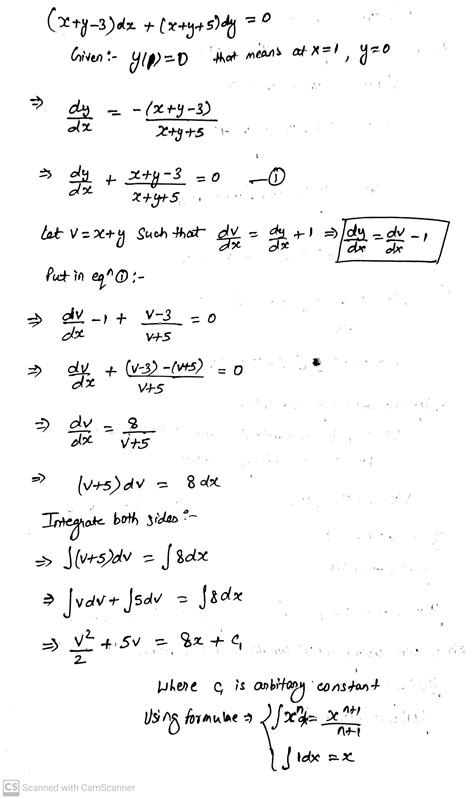 (x+y-3)dx + (x+y+5)dy = 0
Given:- y(1)=0 that means at x=1, y=0
⇒ dy/dx = -(x+y-3)/x+y+5
⇒ dy/dx + x+y-3/x+y+5 = 0 —①
Let v=x+y such that dv/dx = dy/dx +1 ⇒ dy/dx = dv/dx -1
Put in eqn ①:-
⇒ dv/dx -1 + v-3/v+5 = 0
⇒ dv/dx + (v-3)-(v+5)/v+5 = 0
⇒ dv/dx = 8/v+5
⇒ (v+5)dv = 8dx
Integrate both sides:-
⇒ ∫(v+5)dv = ∫8dx
⇒ ∫vdv + ∫5dv = ∫8dx
⇒ v²/2 + 5v = 8x + C₁
Where C₁ is arbitary constant
Using formulae ⇒ { ∫xⁿdx = xⁿ⁺¹/n+1
∫1dx = x
CS Scanned with CamScanner